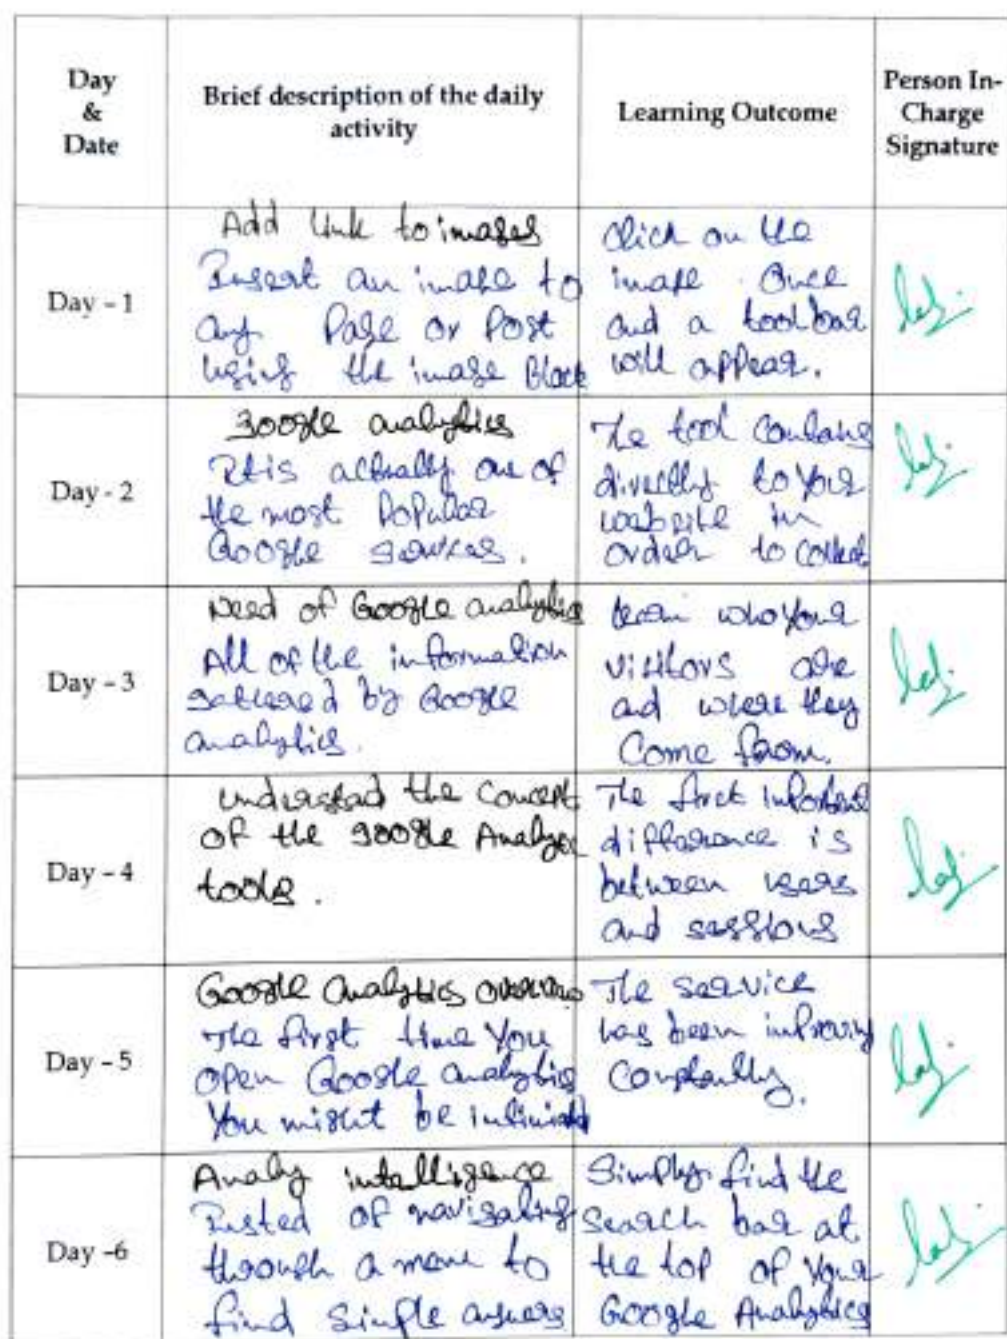 Day
&
Date
Brief description of the daily
activity
Learning Outcome
Person In-
Charge
Signature
Day - 1
Add link to images
Insert an image to
any Page or Post
using the image Block
Click on the
image Once
and a tool bar
will appear.
Day - 2
google analytics
It is actually one of
the most Popular
Google services.
The tool
directly to your
website in
order to collect
Day - 3
Need of Google analytics
All of the information
gathered by Google
analytics.
learn who your
visitors are
and where they
Come from.
Day - 4
understad the Concept
of the google
tools.
The first
difference is
between users
and sessions
Day - 5
Google Analytics
The first time You
open Google analytics
You might be
The service
has been improving
Constantly.
Day -6
Analy intelligence
Insted of navigating
through a menu to
find simple answers
Simply find the
search bar at
the top of your
Google Analytics